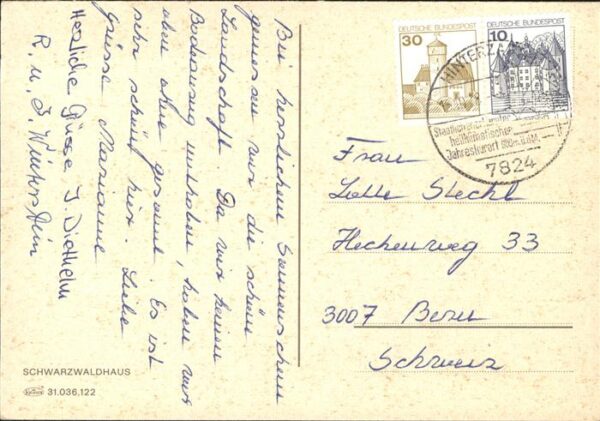 Bei herrlichem Sonnenschein
geniessen wir die schöne
Landschaft. Da wir keinen
haben, haben wir
eben ohne gerannt. Es ist
sehr schön hier. Liebe
Grüsse Marianne
Herzliche Grüsse J. Diethelm
R. u. J. Winterstein
SCHWARZWALDHAUS
31.036.122
30 DEUTSCHE BUNDESPOST
10 DEUTSCHE BUNDESPOST
HINTERZ
Staatlich
heilklimatischer
Jahreskurort
7824
Frau
Lotte Stechl
Heckenweg 33
3007 Bern
Schweiz